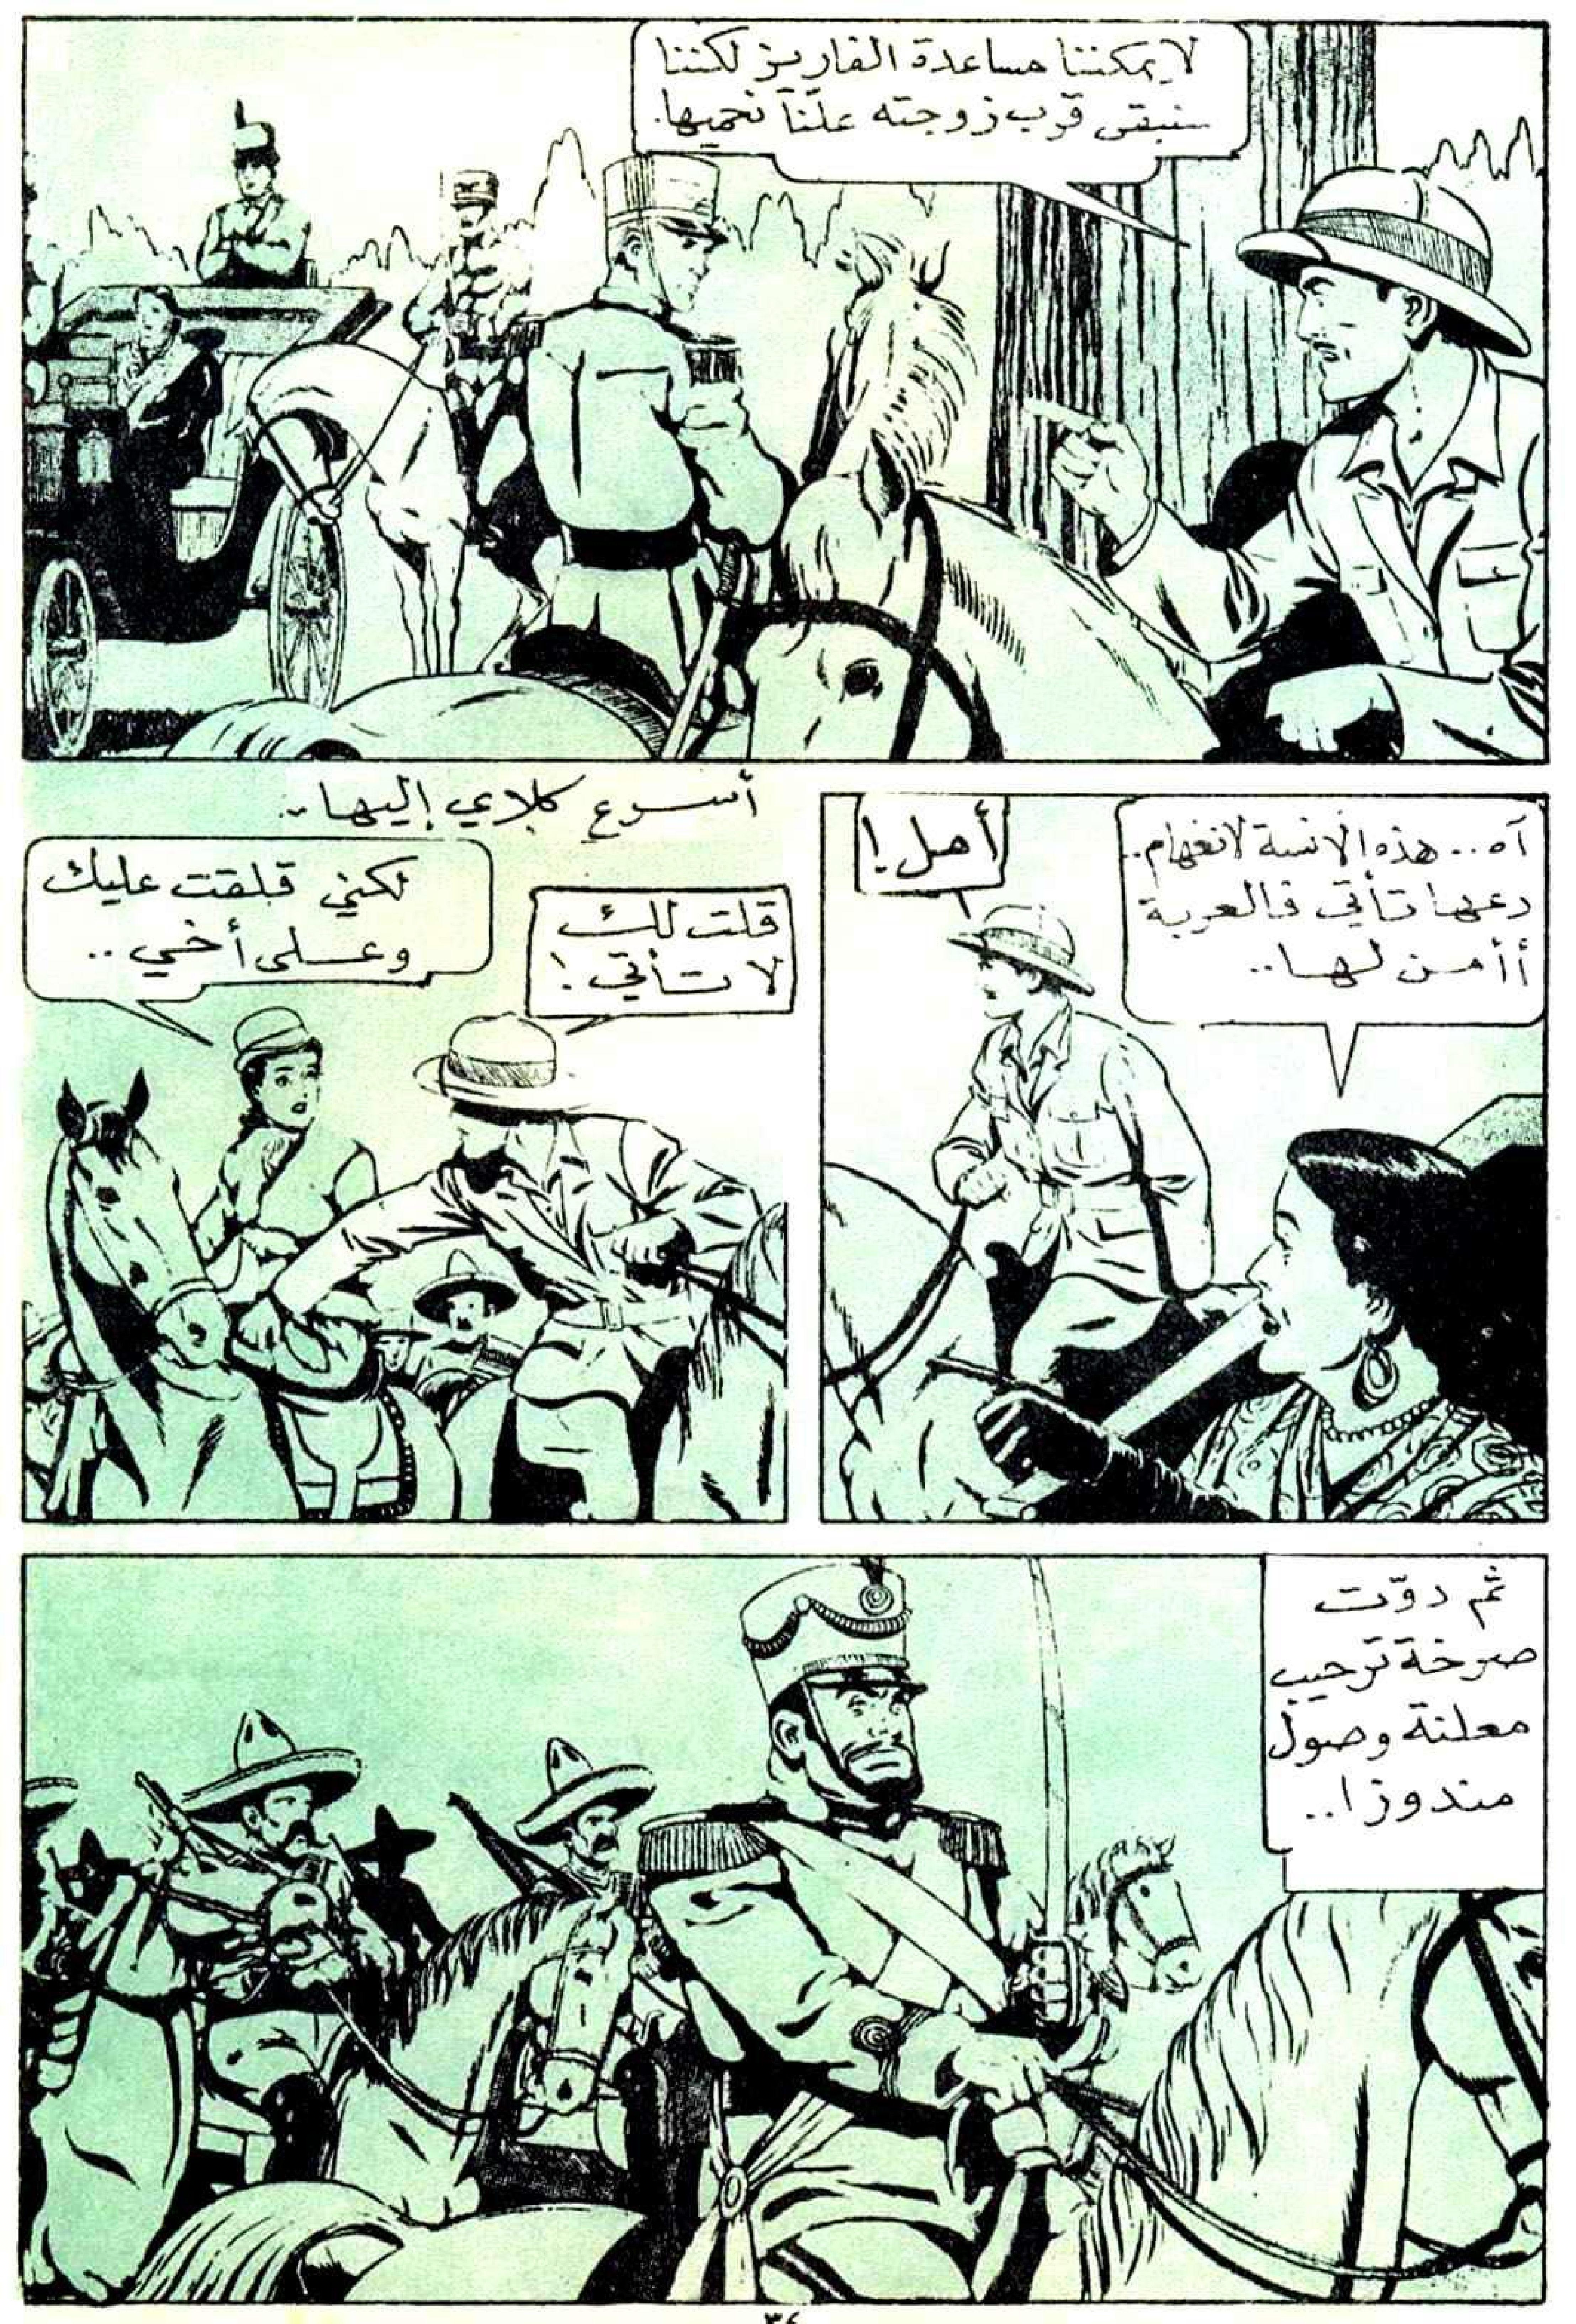 لا يمكننا مساعدة الفاريز لكننا
سنبقى قرب زوجته علّنا نحميها.
آه.. هذه الانسة لانغهام..
دعها تأتي فالعربة
أأمن لها..
أهل!
أسرع كلاي إليها..
قلت لك
لا تأتي!
لكني قلقت عليك
وعلى أخي..
ثم دوّت
صرخة ترحيب
معلنة وصول
مندوزا..
٣٤